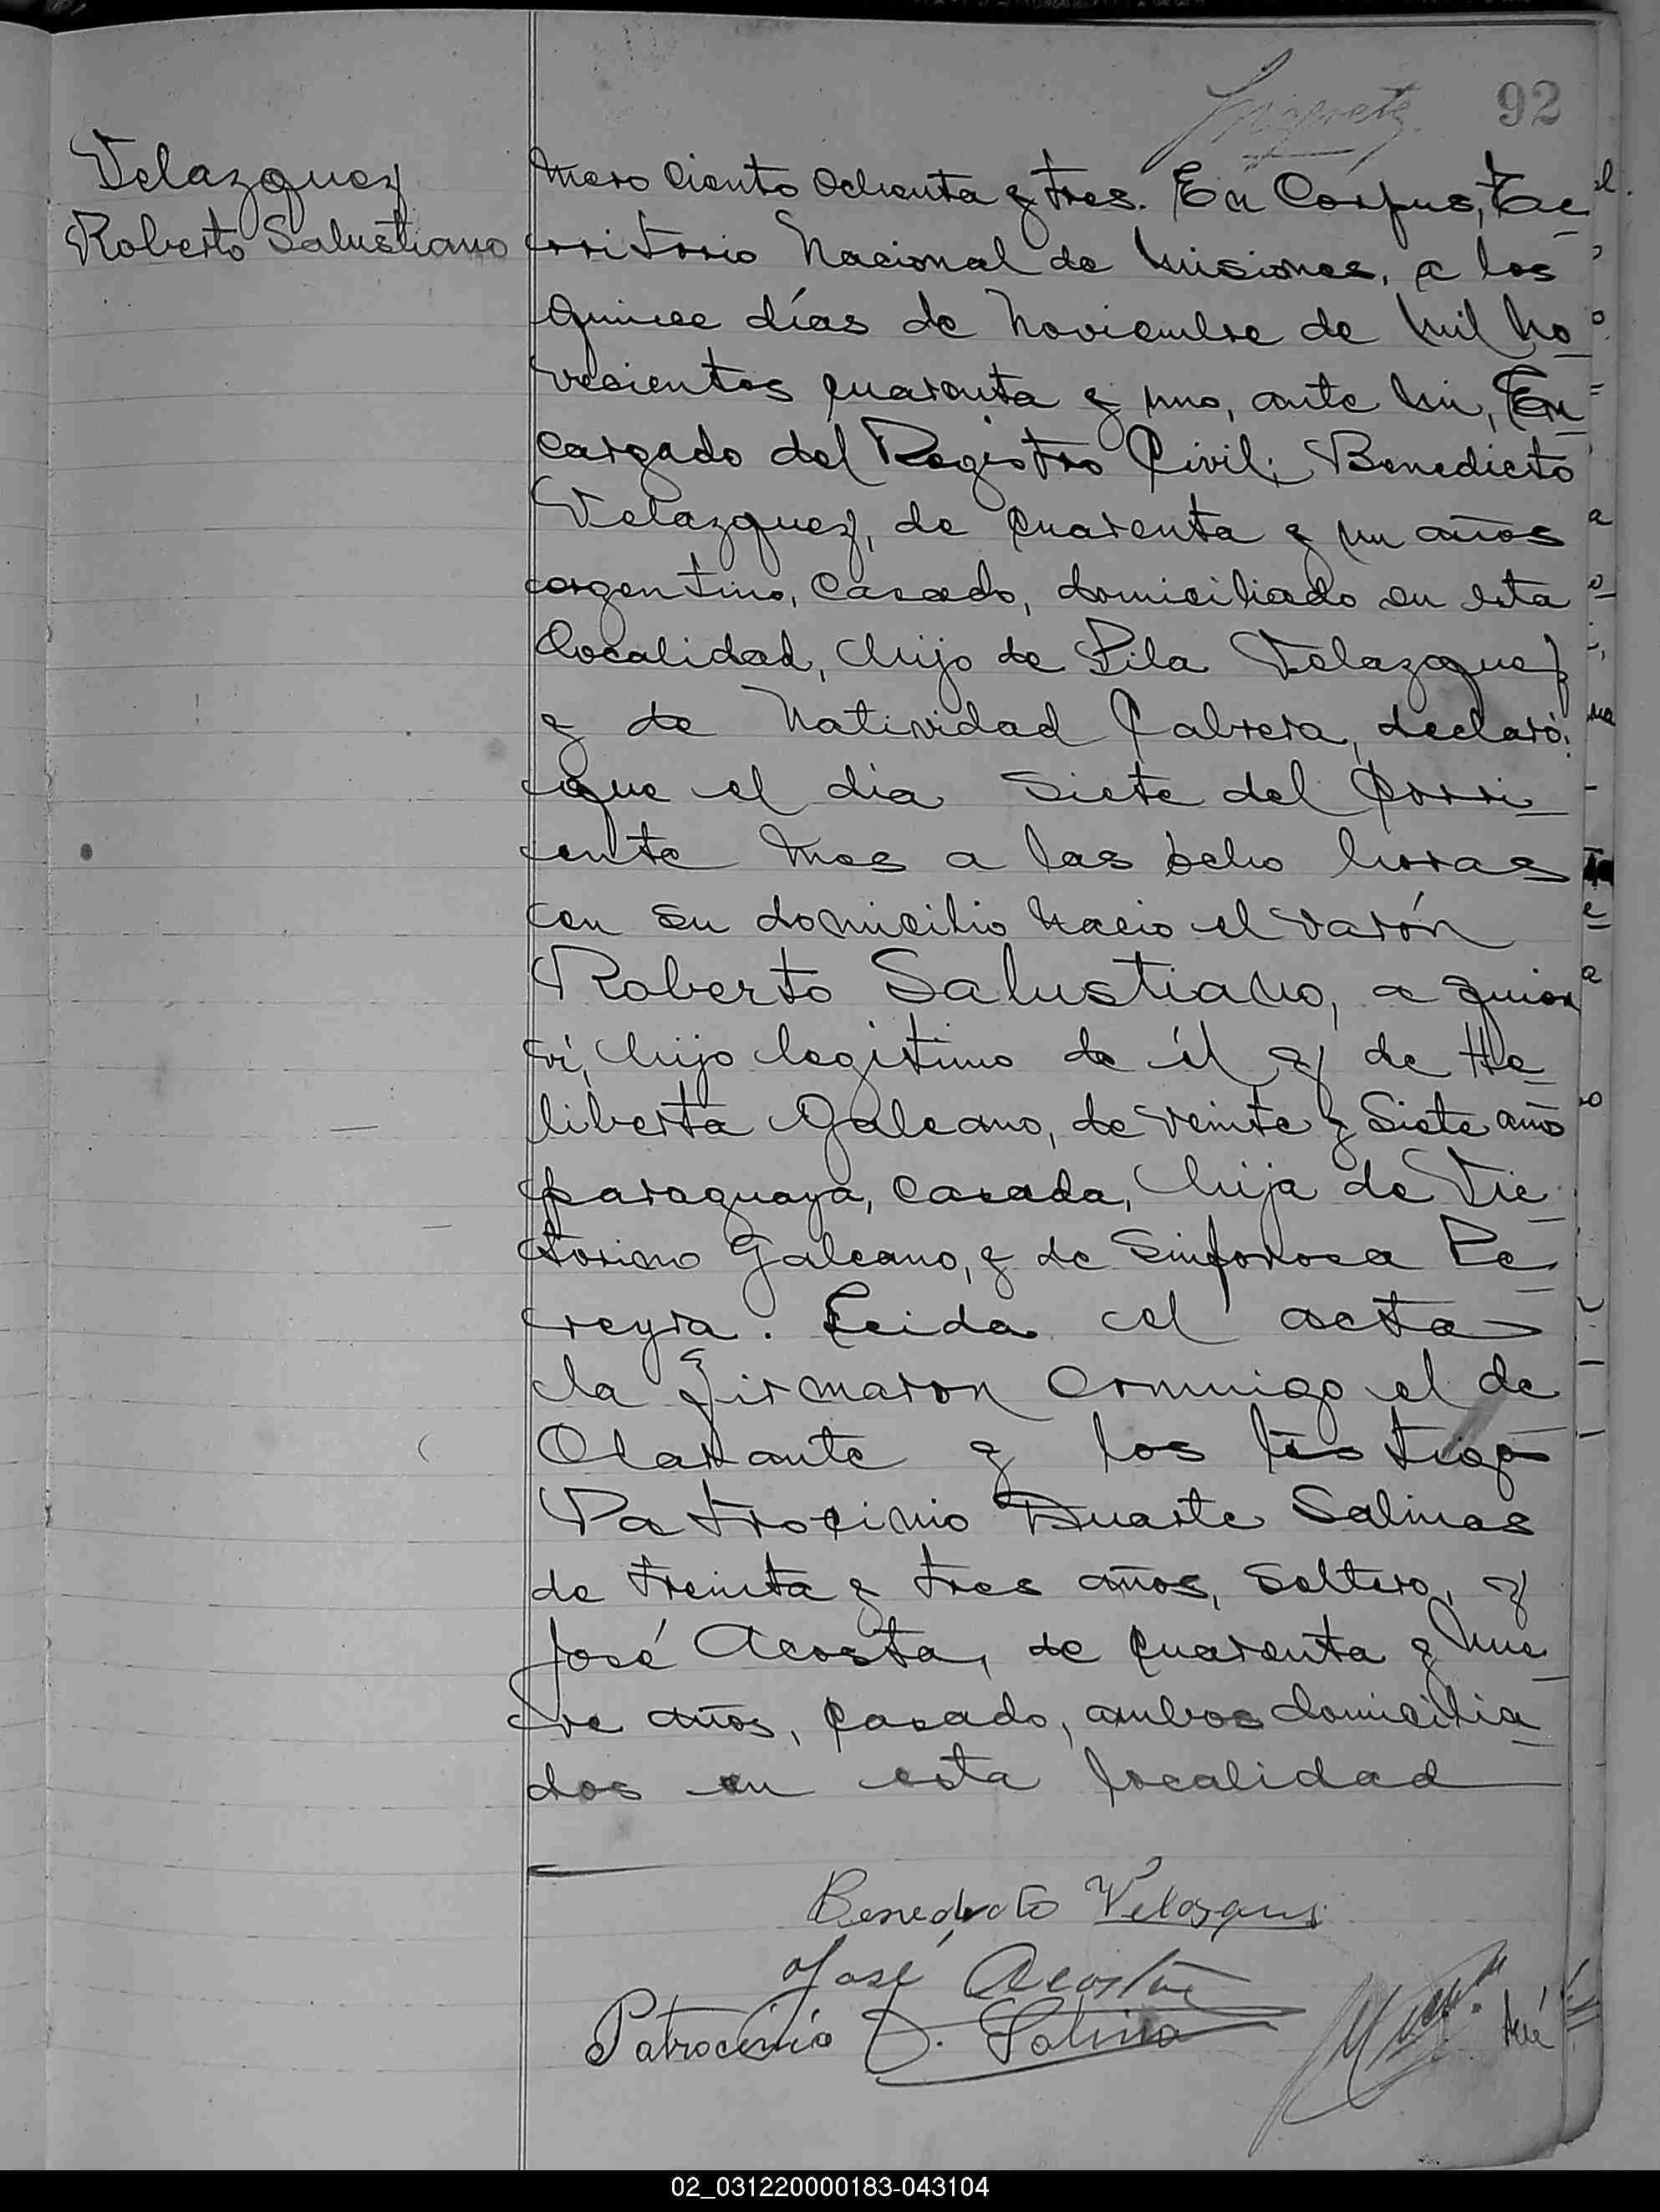 92
Velazquez
Roberto Salustiano
mero Ciento Ochenta y tres. En Corpus, Te-
rritorio Nacional de Misiones, a los
quince días de Noviembre de mil no-
vecientos cuarenta y uno, ante mi, En-
cargado del Registro Civil; Benedicto
Velazquez, de cuarenta y un años
argentino, casado, domiciliado en esta
localidad, hijo de Pila Velazquez
y de Natividad Cabrera, declaró:
que el día siete del corri-
ente mes a las ocho horas
en su domicilio nacio el varón
Roberto Salustiano, a quien
vi, hijo legitimo de él y de He-
liberta Galeano, de veinte y siete año
paraguaya, casada, hija de Vic-
torino Galeano, y de Sinforosa Pe-
reyra. Leida el acta
la firmaron conmigo el de
clarante y los testigos
Patrocinio Duarte Salinas
de treinta y tres años, soltero, y
José Acosta, de cuarenta y nue-
ve años, casado, ambos domicilia-
dos en esta localidad
Benedicto Velasques
José Acosta
Patrocinio D. Salina
02_031220000183-043104